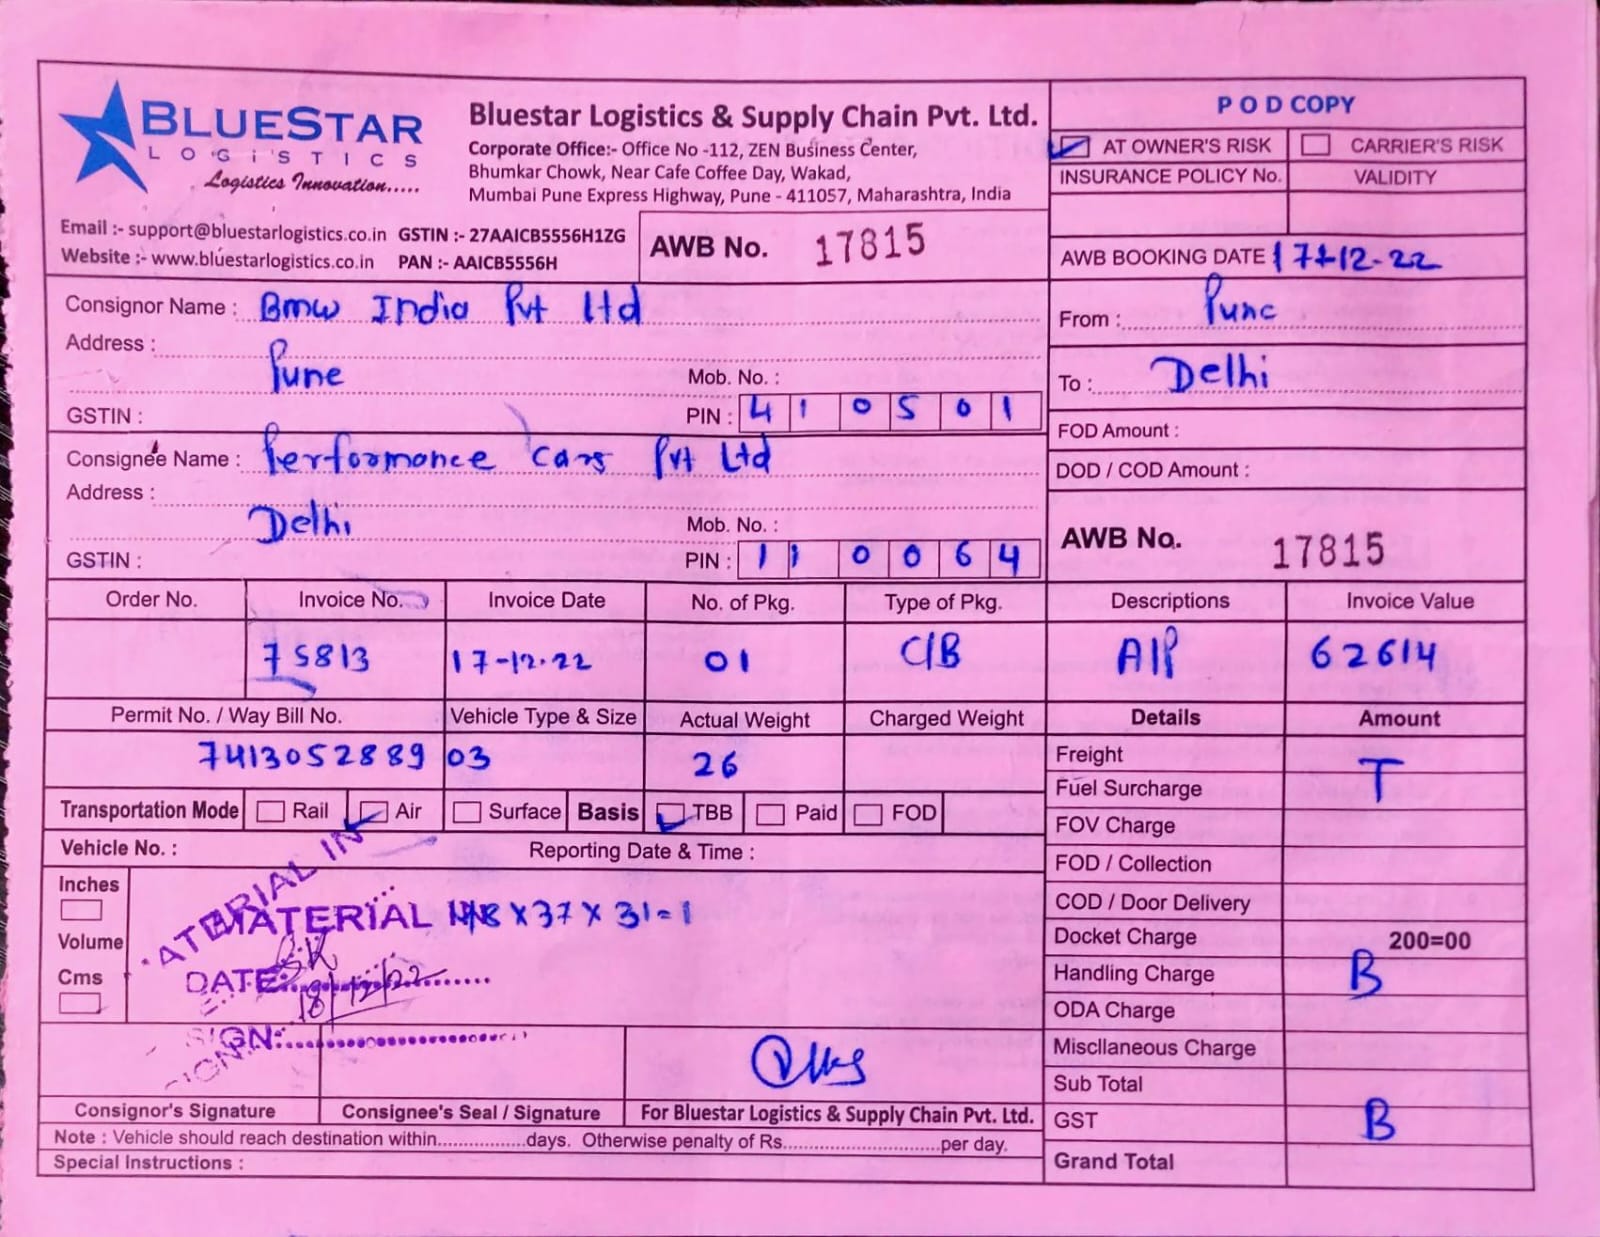 BLUESTAR
LOGISTICS
Logistics Innovation.....
Bluestar Logistics & Supply Chain Pvt. Ltd.
Corporate Office:- Office No -112, ZEN Business Center,
Bhumkar Chowk, Near Cafe Coffee Day, Wakad,
Mumbai Pune Express Highway, Pune - 411057, Maharashtra, India
Email :- support@bluestarlogistics.co.in GSTIN :- 27AAICB5556H1ZG
Website :- www.bluestarlogistics.co.in PAN :- AAICB5556H
AWB No. 17815
POD COPY
AT OWNER'S RISK CARRIER'S RISK
INSURANCE POLICY No. VALIDITY
AWB BOOKING DATE 17-12-22
Consignor Name : Bmw India Pvt Ltd
Address :
Pune
Mob. No. :
GSTIN : PIN : 410501
From : Pune
To : Delhi
FOD Amount :
DOD / COD Amount :
Consignee Name : Performance Cars Pvt Ltd
Address :
Delhi
Mob. No. :
GSTIN : PIN : 110064
AWB No. 17815
Order No. Invoice No. Invoice Date No. of Pkg. Type of Pkg. Descriptions Invoice Value
75813 17-12-22 01 C/B A/P 62614
Permit No. / Way Bill No. Vehicle Type & Size Actual Weight Charged Weight Details Amount
741305288903 26
Freight
T
Fuel Surcharge
Transportation Mode Rail Air Surface Basis TBB Paid FOD
FOV Charge
Vehicle No. : Reporting Date & Time :
FOD / Collection
Inches
COD / Door Delivery
MATERIAL IN
MATERIAL
x 37 x 31 = 1
Volume
Docket Charge 200=00
Cms
DATE:
18/12/22
Handling Charge
B
ODA Charge
SIGN:
SIGN
Miscllaneous Charge
Sub Total
Consignor's Signature Consignee's Seal / Signature For Bluestar Logistics & Supply Chain Pvt. Ltd.
GST B
Note : Vehicle should reach destination within.................days. Otherwise penalty of Rs...............................per day.
Grand Total
Special Instructions :